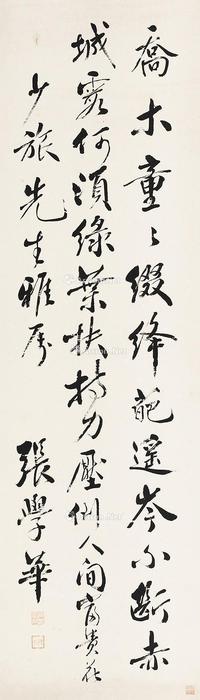 喬木童〻綴絳葩遙岑不斷赤
城霞何須綠葉扶持力壓倒人間富貴花
少旅先生雅屬
張學華